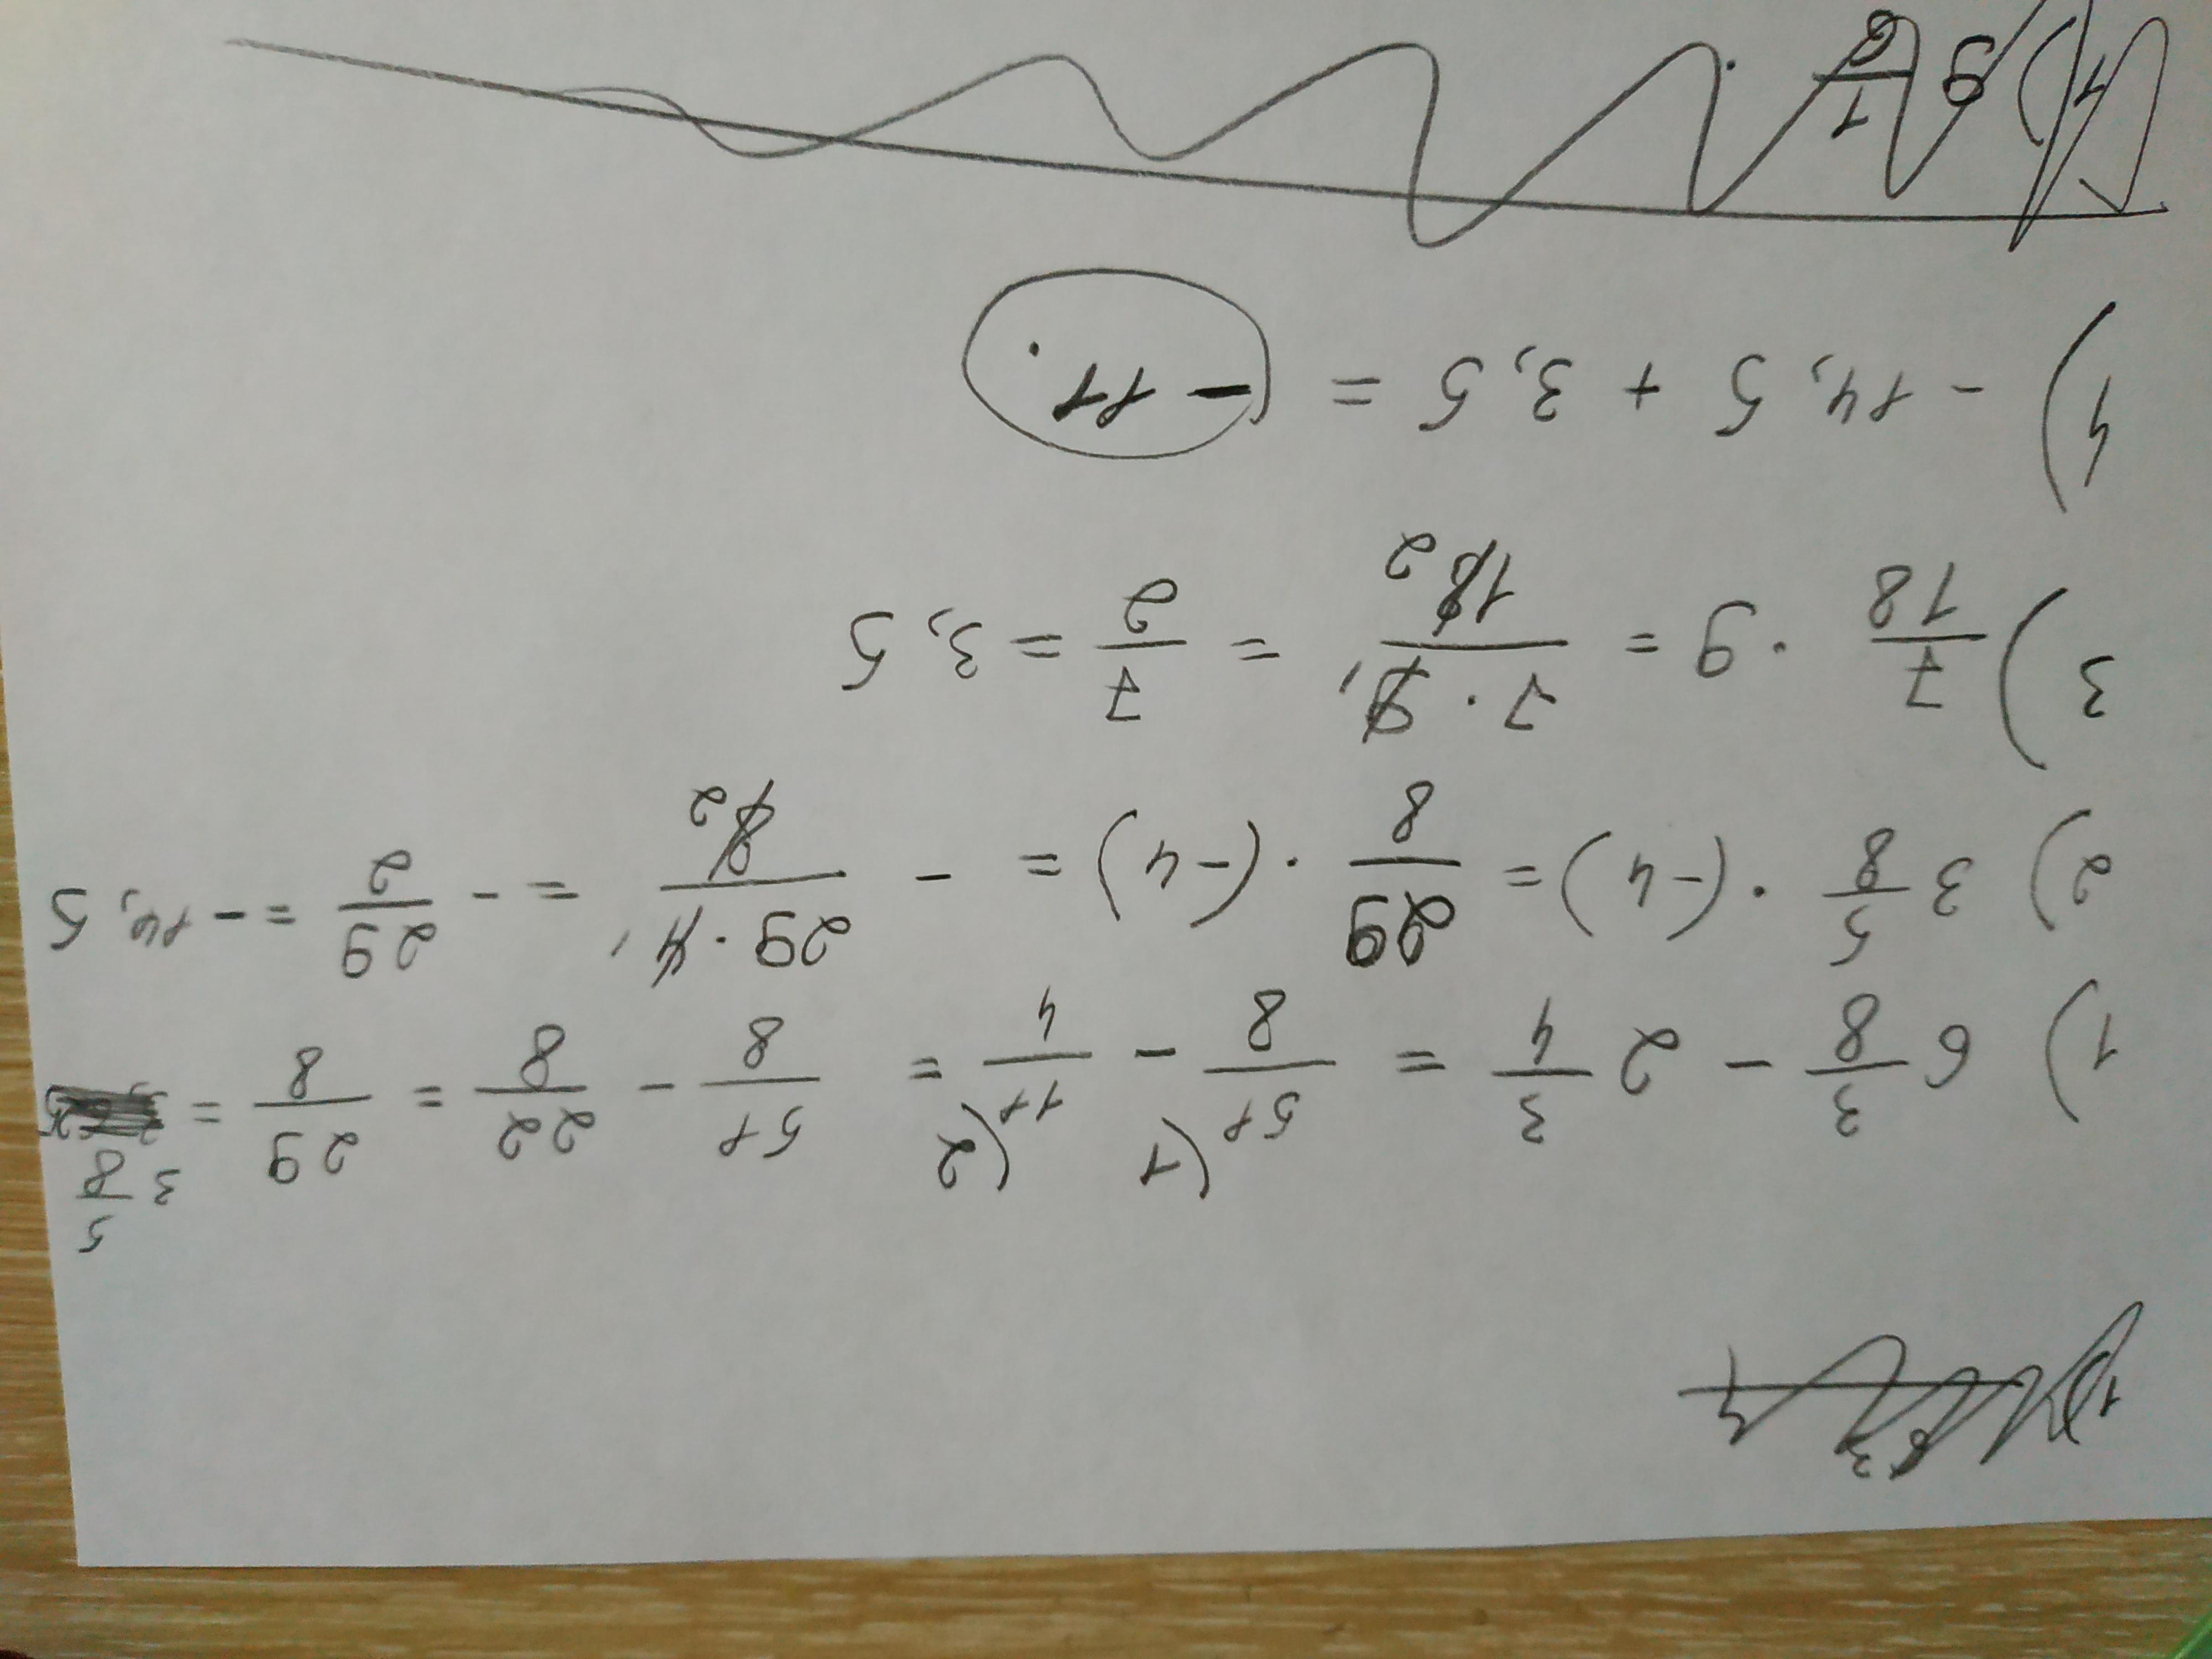 1) 6 3/8 - 2 3/4 = 51/8 (1 - 11/4 (2 = 51/8 - 22/8 = 29/8 = 3 5/8
2) 3 5/8 · (-4) = 29/8 · (-4) = - 29 · 4 1 / 8 2 = - 29/2 = - 14,5
3) 7/18 · 9 = 7 · 9 1 / 18 2 = 7/2 = 3,5
4) - 14,5 + 3,5 = - 11.
4) 9 1/6